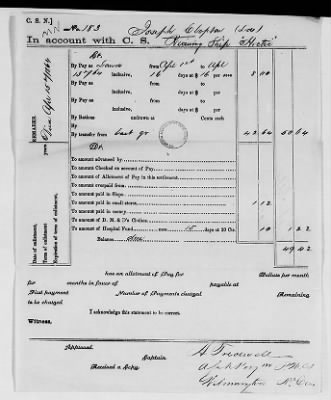 C. S. N.]
No 183 Joseph Clopton (Sea)
In account with C. S. Receiving Ship "Arctic"
Cr.
By Pay as from Apl 1st to Apl
15th/64 Inclusive, 16 days at $16 per mo 8 00
By Pay as from to
Inclusive, days at $ per
By Pay as from to
Inclusive, days at $ per
By Rations unknown at Cents
By
By transfer from last qr 42.64 50 64
Dr.
To amount advanced by
To amount Checked on account of Pay
To amount of Allotment of Pay in this settlement
To amount overpaid from
To amount paid in Slops
To amount paid in small stores 1 12
To amount paid in money
To amount of D. M. & D's Clothes
To amount of Hospital Fund 15 days at 20 Cts. 10 1 22
Balance due 49 42
REMARKS.
Apr 15th 1864
years
Date of enlistment,
Term of enlistment,
Expiration of term of enlistment,
has an allotment of Pay for Dollars per month
for months in favor of payable at
First payment Number of Payments charged Remaining
to be charged
I acknowledge this statement to be correct.
Witness,
Approved.
Captain
Received a Copy.
Wilmington N. Ca